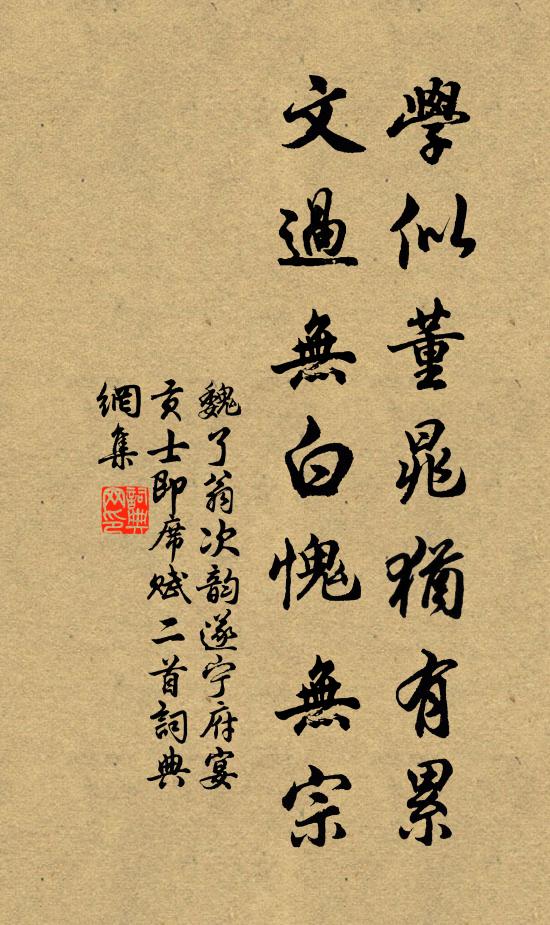 學似董晁猶有累
文過無白愧無宗
魏了翁次韵遂宁府宴
贡士即席赋二首詞典
網集
詞典
网印